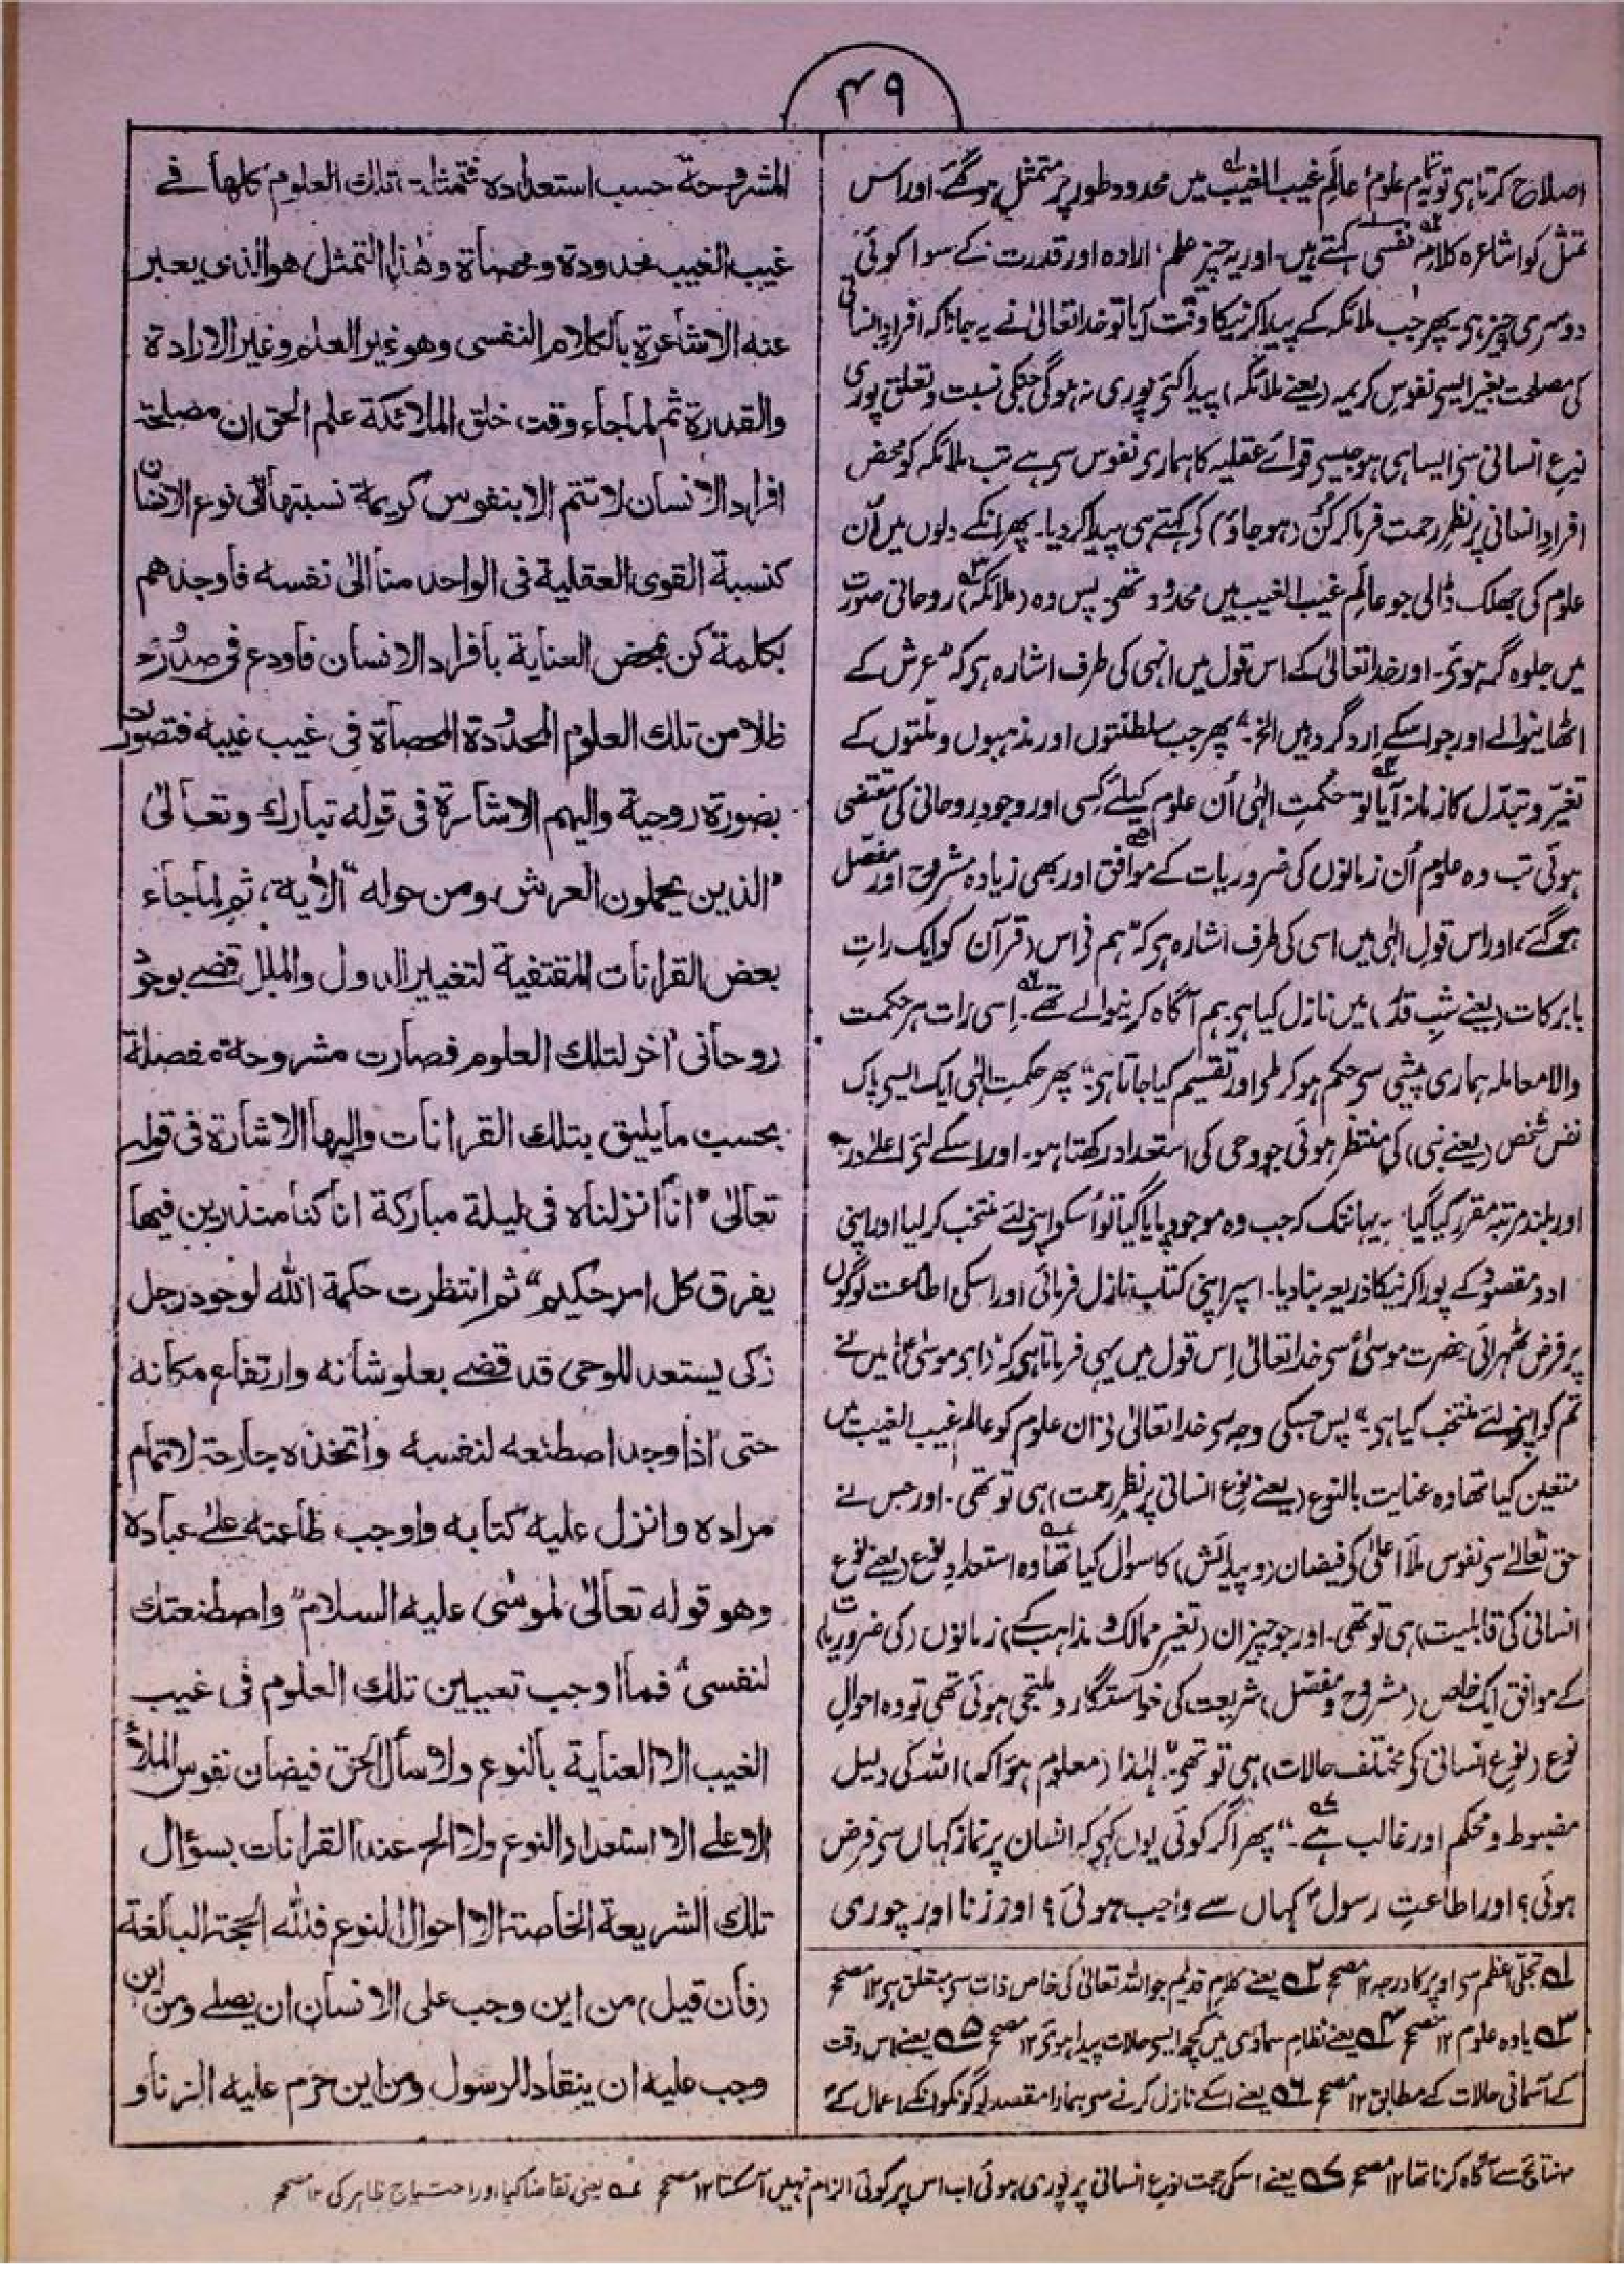 ۴۹
اصلاح کرتا ہی تو یہ تمام علوم عالمِ غیب الغیب میں محدود طور پر متمثل ہوگئے۔ اور اس
تمثل کو اشاعرہ کلامِ نفسی کہتے ہیں۔ اور یہ چیز علم، ارادہ اور قدرت کے سوا کوئی
دوسری چیز ہی۔ پھر جب ملائکہ کے پیدا کرنیکا وقت آیا تو خدا تعالیٰ نے یہ جانا کہ افراد انسانی
کی مصلحت بغیر ایسی نفوس کریمہ (یعنے ملائکہ) پیدا کئے پوری نہ ہوگی جنکی نسبت و تعلق پوری
نوعِ انسانی سی ایسا ہی ہو جیسی قوائے عقلیہ کا ہماری نفوس سی ہے تب ملائکہ کو محض
افراد انسانی پر نظرِ رحمت فرما کر کُن (ہو جاؤ) کے کہتے ہی پیدا کر دیا۔ پھر انکے دلوں میں اُن
علوم کی جھلک ڈالی جو عالمِ غیب الغیب میں محدود تھے۔ پس وہ (ملائکہ) روحانی صورت
میں جلوہ گر ہوئے۔ اور خدا تعالیٰ کے اس قول میں انہی کی طرف اشارہ ہی کہ "عرش کے
اٹھا نیوالے اور جو اسکے ارد گرد ہیں الخ"۔ پھر جب سلطنتوں اور مذہبوں و ملتوں کے
تغیر و تبدّل کا زمانہ آیا تو حکمتِ الٰہی اُن علوم کیلئے کسی اور وجودِ روحانی کی مقتضی
ہوئی تب وہ علوم اُن زمانوں کی ضروریات کے موافق اور بھی زیادہ مشروح اور مفصل
ہوگئے، اور اس قولِ الٰہی میں اسی کی طرف اشارہ ہی کہ "ہم نے اس (قرآن) کو ایک رات
بابرکات (یعنے شبِ قدر) میں نازل کیا ہی ہم آگاہ کرنیوالے تھے۔ اِسی رات ہر حکمت
والا معاملہ ہماری پیشی سی حکم ہو کر طے اور تقسیم کیا جاتا ہی"۔ پھر حکمتِ الٰہی ایک ایسی پاک
نفس شخص (یعنے نبی) کی منتظر ہوئی جو وحی کی استعداد رکھتا ہو۔ اور اسکے لئے اعلےٰ درجہ
اور بلند مرتبہ مقرر کیا گیا۔ یہانتک کہ جب وہ موجود پایا گیا تو اُسکو اپنے لئے منتخب کر لیا اور اپنی
مقصود کے پورا کرنیکا ذریعہ بنا دیا۔ اسپر اپنی کتاب نازل فرمائی اور اسکی اطاعت لوگوں
پر فرض ٹھہرائی حضرت موسیٰؑ سی خدا تعالیٰ اِس قول میں یہی فرماتا ہی کہ "(اے موسیٰؑ) میں نے
تم کو اپنے لئے منتخب کیا ہی"۔ پس جسکی وجہ سی خدا تعالیٰ نے ان علوم کو عالم غیب الغیب میں
متعین کیا تھا وہ عنایت بالنوع (یعنے نوعِ انسانی پر نظرِ رحمت) ہی تو تھی۔ اور جس نے
حق تعالےٰ سی نفوس ملأ اعلیٰ کے فیضان (و پیدائش) کا سوال کیا تھا وہ استعدادِ نوع (یعنے نوع
انسانی کی قابلیت) ہی تو تھی۔ اور جو چیز ان (تغیر ممالک و مذاہب کے) زمانوں (کی ضروریات)
کے موافق ایک خاص (مشروح و مفصل) شریعت کی خواستگار و ملتجی ہوئی تھی تو وہ احوالِ
نوع (نوعِ انسانی کے مختلف حالات) ہی تو تھے۔ لہٰذا (معلوم ہوا کہ) "اللہ کی دلیل
مضبوط و محکم اور غالب ہے۔" پھر اگر کوئی یوں کہے کہ انسان پر نماز کہاں سی فرض
ہوئی؟ اور اطاعتِ رسولؐ کہاں سے واجب ہوئی؟ اور زنا اور چوری
لہ تجلّی اعظم سی اوپر کا درجہ ۱۲ مصحح ۲ہ یعنے کلام قدیم جو اللہ تعالیٰ کی خاص ذات سی متعلق ہی ۱۲ مصحح
۳ہ یا وہ علوم ۱۲ مصحح ۴ہ یعنے نظامِ سماوی میں کچھ ایسی حالات پیدا ہوئے ۱۲ مصحح ۵ہ یعنے اس وقت
کے آسمانی حالات کے مطابق ۱۲ مصحح ۶ہ یعنے اسکے نازل کرنے سی ہمارا مقصد لوگونکو انکے اعمال کے
المشروحة حسب استعداده فتمثلت تلك العلوم كلها فے
غيب الغيب محدودة ومحصاة وهٰذا التمثل هو الذى يعبر
عنه الاشاعرة بالكلام النفسى وهو غير العلم وغير الارادة
والقدرة ثم لما جاء وقت خلق الملائكة علم الحق ان مصلحة
افراد الانسان لا تتم الا بنفوس كريمة نسبتها الى نوع الانسان
كنسبة القوى العقلية فى الواحد منا الىٰ نفسه فاوجدهم
بكلمة كن بمحض العناية بافراد الانسان فاودع فى صدورهم
ظلا من تلك العلوم المحدودة المحصاة فى غيب غيبه فتصورت
بصورة روحية واليهم الاشارة فى قوله تبارك وتعالىٰ
"الذين يحملون العرش ومن حوله" الآية، ثم لما جاء
بعض القرانات المقتضية لتغيير الدول والملل قضے بوجود
روحانى اخر لتلك العلوم فصارت مشروحة مفصلة
بحسب ما يليق بتلك القرانات واليها الاشارة فى قوله
تعالىٰ "انا انزلناه فى ليلة مباركة انا كنا منذرين فيها
يفرق كل امر حكيم" ثم انتظرت حكمة الله لوجود رجل
زكى يستعد للوحى قد قضے بعلو شانه وارتفاع مكانه
حتى اذا وجد اصطنعه لنفسه واتخذه جارحة لاتمام
مراده وانزل عليه كتابه واوجب طاعته علىٰ عباده
وهو قوله تعالىٰ لموسٰى عليه السلام "واصطنعتك
لنفسى" فما اوجب تعيين تلك العلوم فى غيب
الغيب الا العناية بالنوع ولا سأل الحق فيضان نفوس الملأ
الاعلے الا استعداد النوع ولا الح عند القرانات بسؤال
تلك الشريعة الخاصة الا احوال النوع فلله الحجة البالغة
(فان قيل) من اين وجب على الانسان ان يصلے ومن اين
وجب عليه ان ينقاد للرسول ومن اين حرم عليه الزنا و
نتائج سے آگاہ کرنا تھا ۱۲ مصحح ۷ہ یعنے اسکی حجت نوعِ انسانی پر پوری ہوئی اب اس پر کوئی الزام نہیں آسکتا ۱۲ مصحح ۸ہ یعنی تقاضا کیا اور احتیاج ظاہر کی ۱۲ مصحح